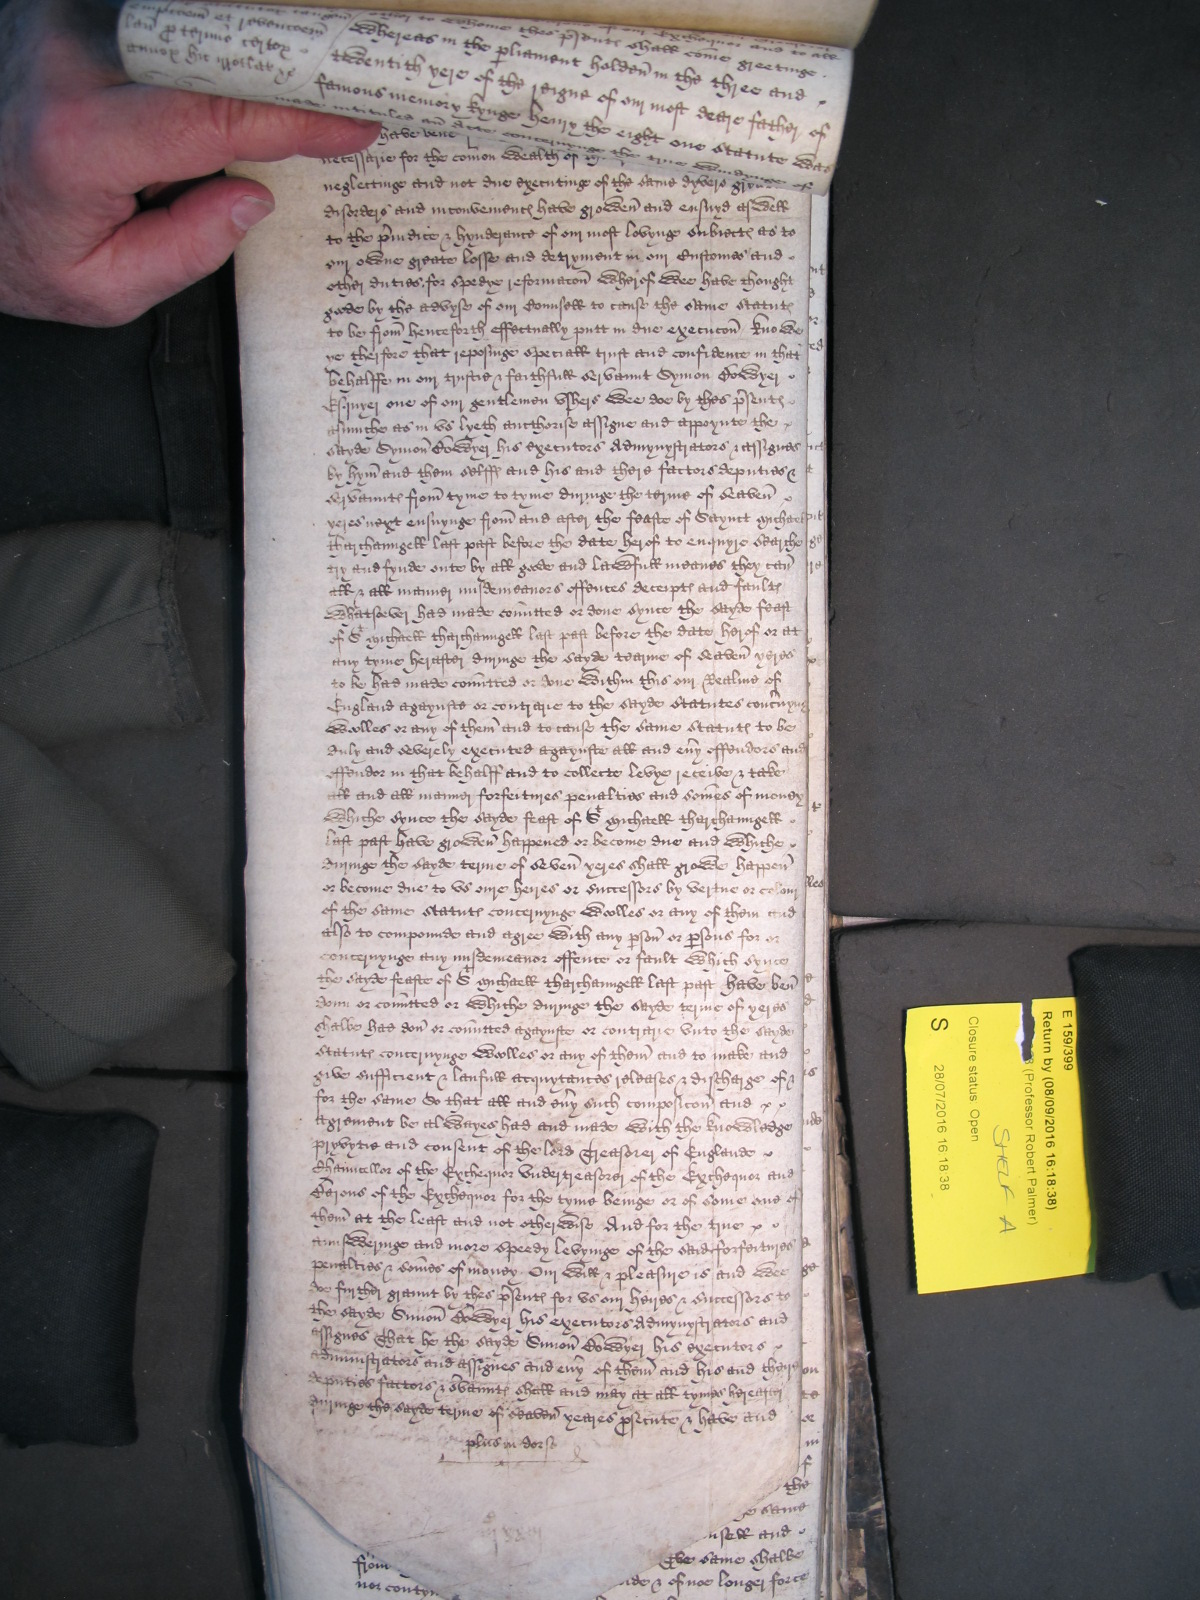 other to whome thes p̃sents shall come greetinge.
Whereas in the pliament holden in the three and
twentith yere of the reigne of our most deare father of
famous memory kynge henry the eight one Statute was
made intituled an Acte concernynge the true wyndynge of
have bene
necessarie for the com̃on wealth of
neglectinge and not due executinge of the same dyvers
disorders and inconvenients have growen and ensuyd aswell
to the p̃iudice & hynderance of our most lovynge subiects as to
our owne greate losse and detryment in our Customes and
other duties, for spedye reformacõn wherof wee have thought
goode by the advyse of our Counsell to cause the same statuts
to be from henceforth effectually putt in due execucõn knowe
ye therfore that reposinge speciall trust and confidence in that
behalffe in our trustie & faithfull servaunt Symon Bowyer
Esquyer one of our gentlemen usshers wee doe by thes p̃sents
asmuche as in us lyeth aucthorise assigne and appoynte the
sayde Symon Bowyer his executors Admynystrators & assignes
by hym and them selffe and his and there factors deputies &
servaunts from tyme to tyme duringe the terme of seaven
yeres next ensuynge from and after the feaste of Saynct Michaell
tharchaungell last past before the date herof to enquyre searche
try and fynde oute by all goode and lawfull meanes they can
all & all manner misdemeanors offences deceipts and faults
whatsoever had made com̃itted or done synce the sayde feast
of St Michaell tharchaungell last past before the date herof or at
any tyme herafter duringe the sayde tearme of seaven yeres
to be had made com̃itted or done within this our Realme of
England agaynste or contrarie to the sayde Statutes concernyng
woolles or any of them and to cause the same statuts to be
duly and severely executed agaynste all and ev̾y offendors and
offendor in that behalff and to collecte levye receive & take
all and all manner forfeitures penalties and som̃es of money
whiche synce the sayde feast of St Michaell tharchaungell
last past have growen happened or become due and whiche
duringe the sayde terme of seven yeres shall growe happen
or become due to us oure heires or successors by vertue or colour
of the same statuts concernynge woolles or any of them and
also to compounde and agree with any pson or psons for or
concernynge any misdemeanor offence or fault which synce
the sayde feaste of St Michaell tharchaungell last past have ben
donn or com̃itted or whiche duringe the sayde terme of yeres
shalbe had don or com̃itted agaynste or contrarie unto the sayde
statuts concernynge woolles or any of them and to make and
give sufficient & laufull acquytances releases & discharge of &
for the same So that all and ev̾y such composicõn and
agrement be alwayes had and made with the knowledge
pryvytie and consent of the lord Treasorer of Englande
Chauncellor of the Exchequor undertreasorer of the Exchequor and
Barons of the Exchequor for the tyme beinge or of some one of
them at the least and not otherwise And for the true
aunsweringe and more speedy levynge of the said forfeitures
penalties & som̃es of money Our will & pleasure is and wee
doe further graunt by thes p̃sents for us our heires & successors to
the sayde Simon Bowyer his executors Admynystrators and
assignes That he the sayde Simon Bowyer his executors
administrators and assignes and ev̾y of them and his and there
deputies factors & s̾vaunts shall and may at all tymes hereafter
duringe the sayde terme of seaven yeares p̾secute & have and
plus in dorso
the
same
and
from
The same shalbe
nor
& of noe longer force
E 159/399
Return by (08/09/2016 16:18:38)
(Professor Robert Palmer)
SHELF A
Closure status Open
28/07/2016 16:18:38
S